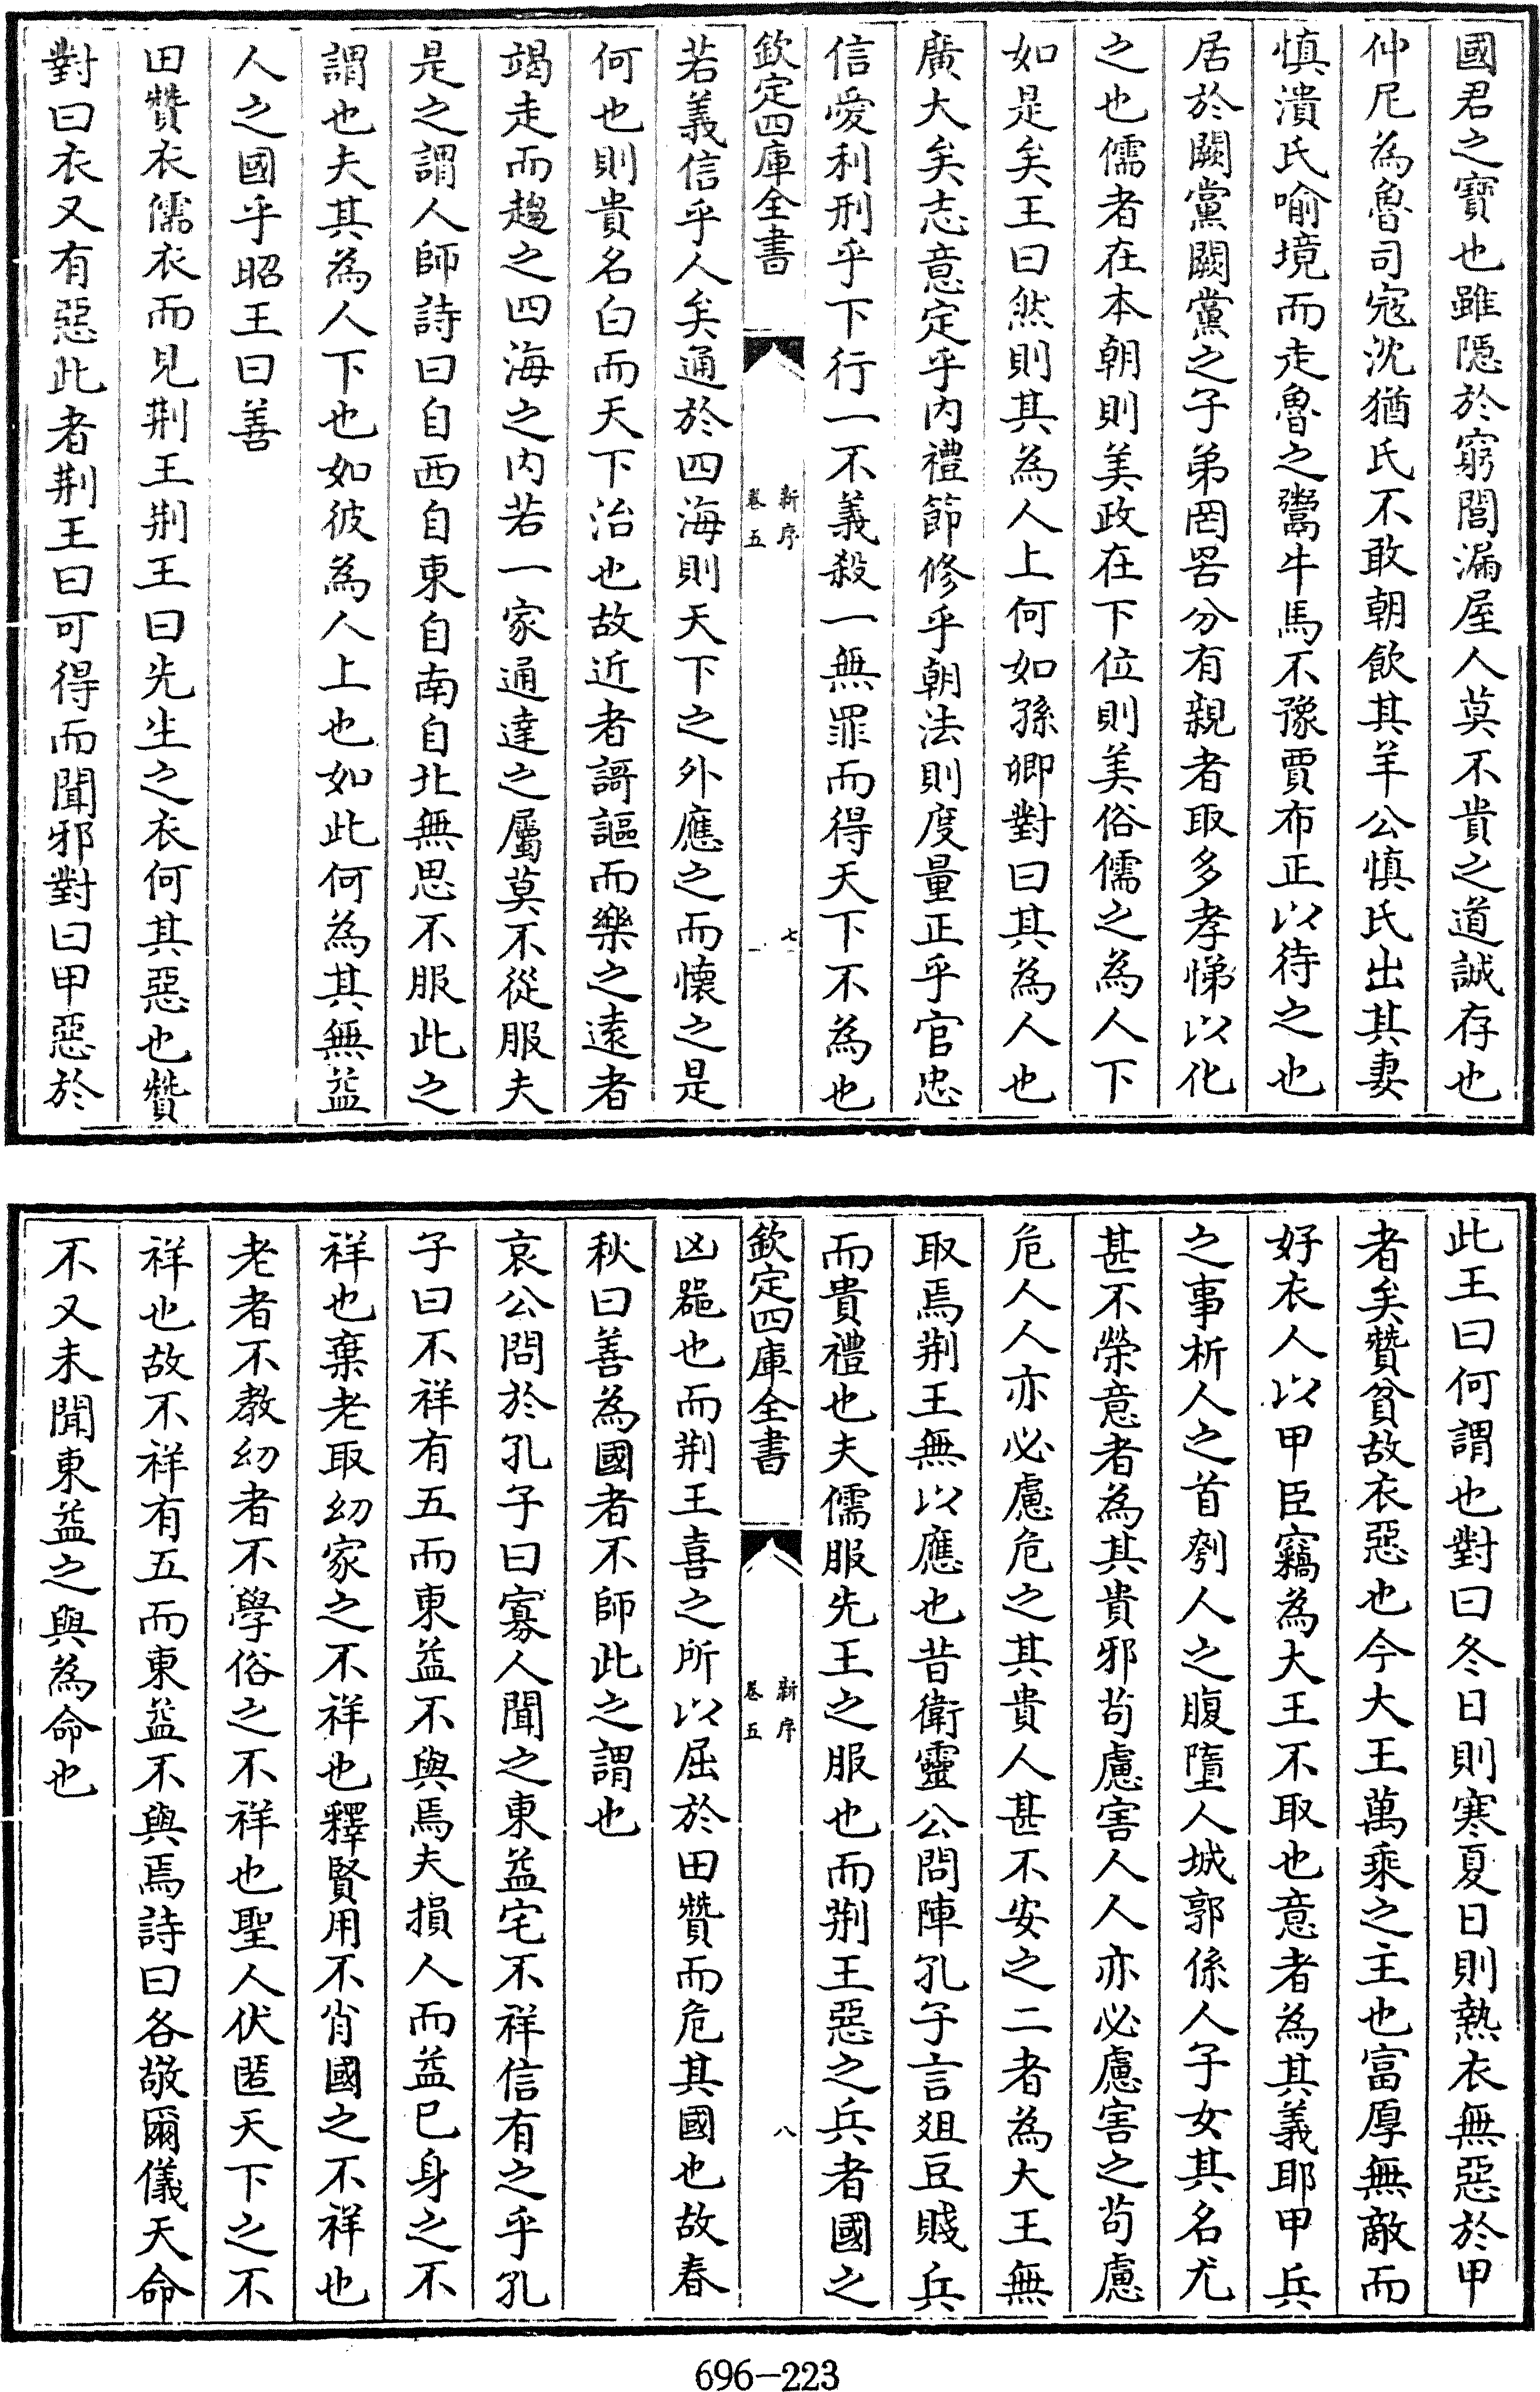 國君之寶也雖隱於窮閻漏屋人莫不貴之道誠存也
仲尼為魯司寇沈猶氏不敢朝飲其羊公慎氏出其妻
慎潰氏喻境而走魯之鬻牛馬不豫賈布正以待之也
居於闕黨闕黨之子弟罔罟分有親者取多孝悌以化
之也儒者在本朝則美政在下位則美俗儒之為人下
如是矣王曰然則其為人上何如孫卿對曰其為人也
廣大矣志意定乎內禮節修乎朝法則度量正乎官忠
信愛利刑乎下行一不義殺一無罪而得天下不為也
欽定四庫全書
新序
卷五
七
若義信乎人矣通於四海則天下之外應之而懷之是
何也則貴名白而天下治也故近者謌謳而樂之遠者
竭走而趨之四海之內若一家通達之屬莫不從服夫
是之謂人師詩曰自西自東自南自北無思不服此之
謂也夫其為人下也如彼為人上也如此何為其無益
人之國乎昭王曰善
田贊衣儒衣而見荆王荆王曰先生之衣何其惡也贊
對曰衣又有惡此者荆王曰可得而聞邪對曰甲惡於
此王曰何謂也對曰冬日則寒夏日則熱衣無惡於甲
者矣贊貧故衣惡也今大王萬乘之主也富厚無敵而
好衣人以甲臣竊為大王不取也意者為其義耶甲兵
之事析人之首刳人之腹墮人城郭係人子女其名尤
甚不榮意者為其貴邪苟慮害人人亦必慮害之苟慮
危人人亦必慮危之其貴人甚不安之二者為大王無
取焉荆王無以應也昔衛靈公問陣孔子言俎豆賤兵
而貴禮也夫儒服先王之服也而荆王惡之兵者國之
欽定四庫全書
新序
卷五
八
凶器也而荆王喜之所以屈於田贊而危其國也故春
秋曰善為國者不師此之謂也
哀公問於孔子曰寡人聞之東益宅不祥信有之乎孔
子曰不祥有五而東益不與焉夫損人而益已身之不
祥也棄老取幼家之不祥也釋賢用不肖國之不祥也
老者不教幼者不學俗之不祥也聖人伏匿天下之不
祥也故不祥有五而東益不與焉詩曰各敬爾儀天命
不又未聞東益之與為命也
696-223